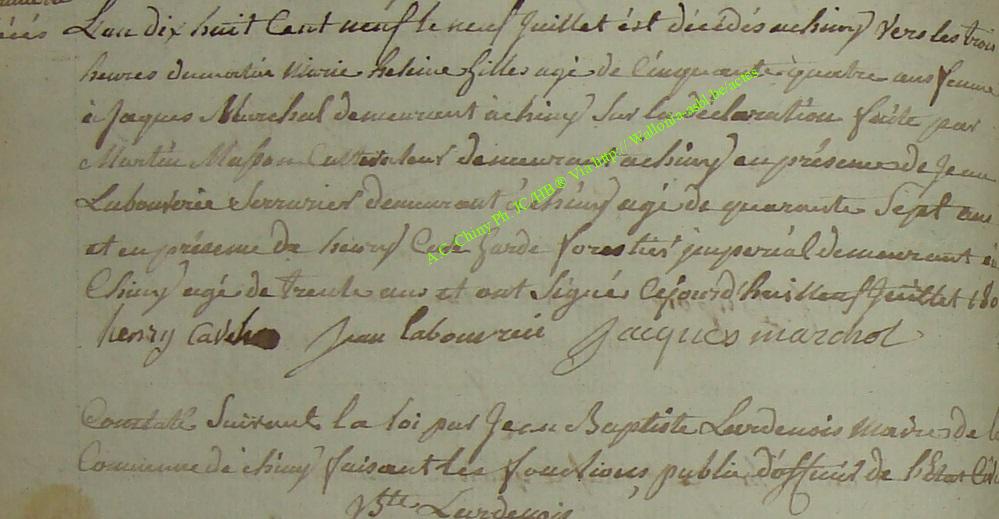 L'an dix huit Cent neuf le neuf Juillet est décédés achiny vers les trois
heures du matin Marie helene gilles agé de Cinquante quatre ans femme
à Jaques Marchal demeurant achiny sur la déclaration faite par
Martin Masson Cultivateur demeurant achiny en présence de Jean
Labouverie Serrurier demeurant à chiny agé de quarante Sept ans
et en présence de henry garde forestier jmperial demeurant à
Chiny agé de trente ans et ont Signé Cejourd'huit neuf Juillet 180
henry Jean labouverie Jacques marchot
Constaté Suivant la loi par Jean Baptiste Lardenois maire de la
Commune de chiny faisant les fonctions public d'officier de l'Etat Civil
Bste Lardenois
A.C. Chiny Ph. JC/HB® Via http://Wallonia-asbl.be/actes